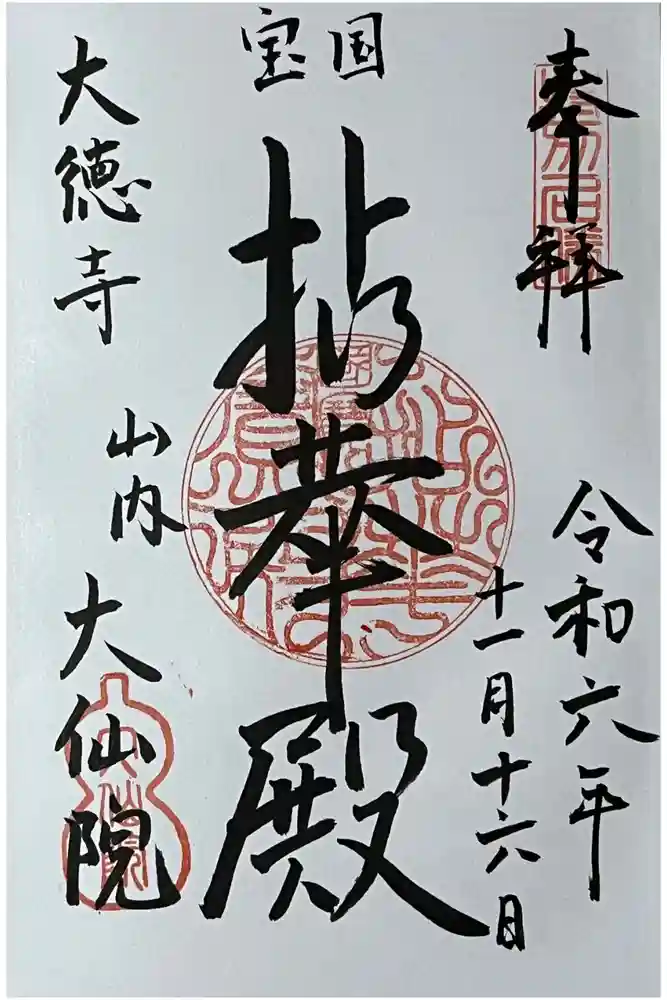 奉拝
令和六年
十一月十六日
国宝
拈華殿
大徳寺
山内
大仙院
大仙院